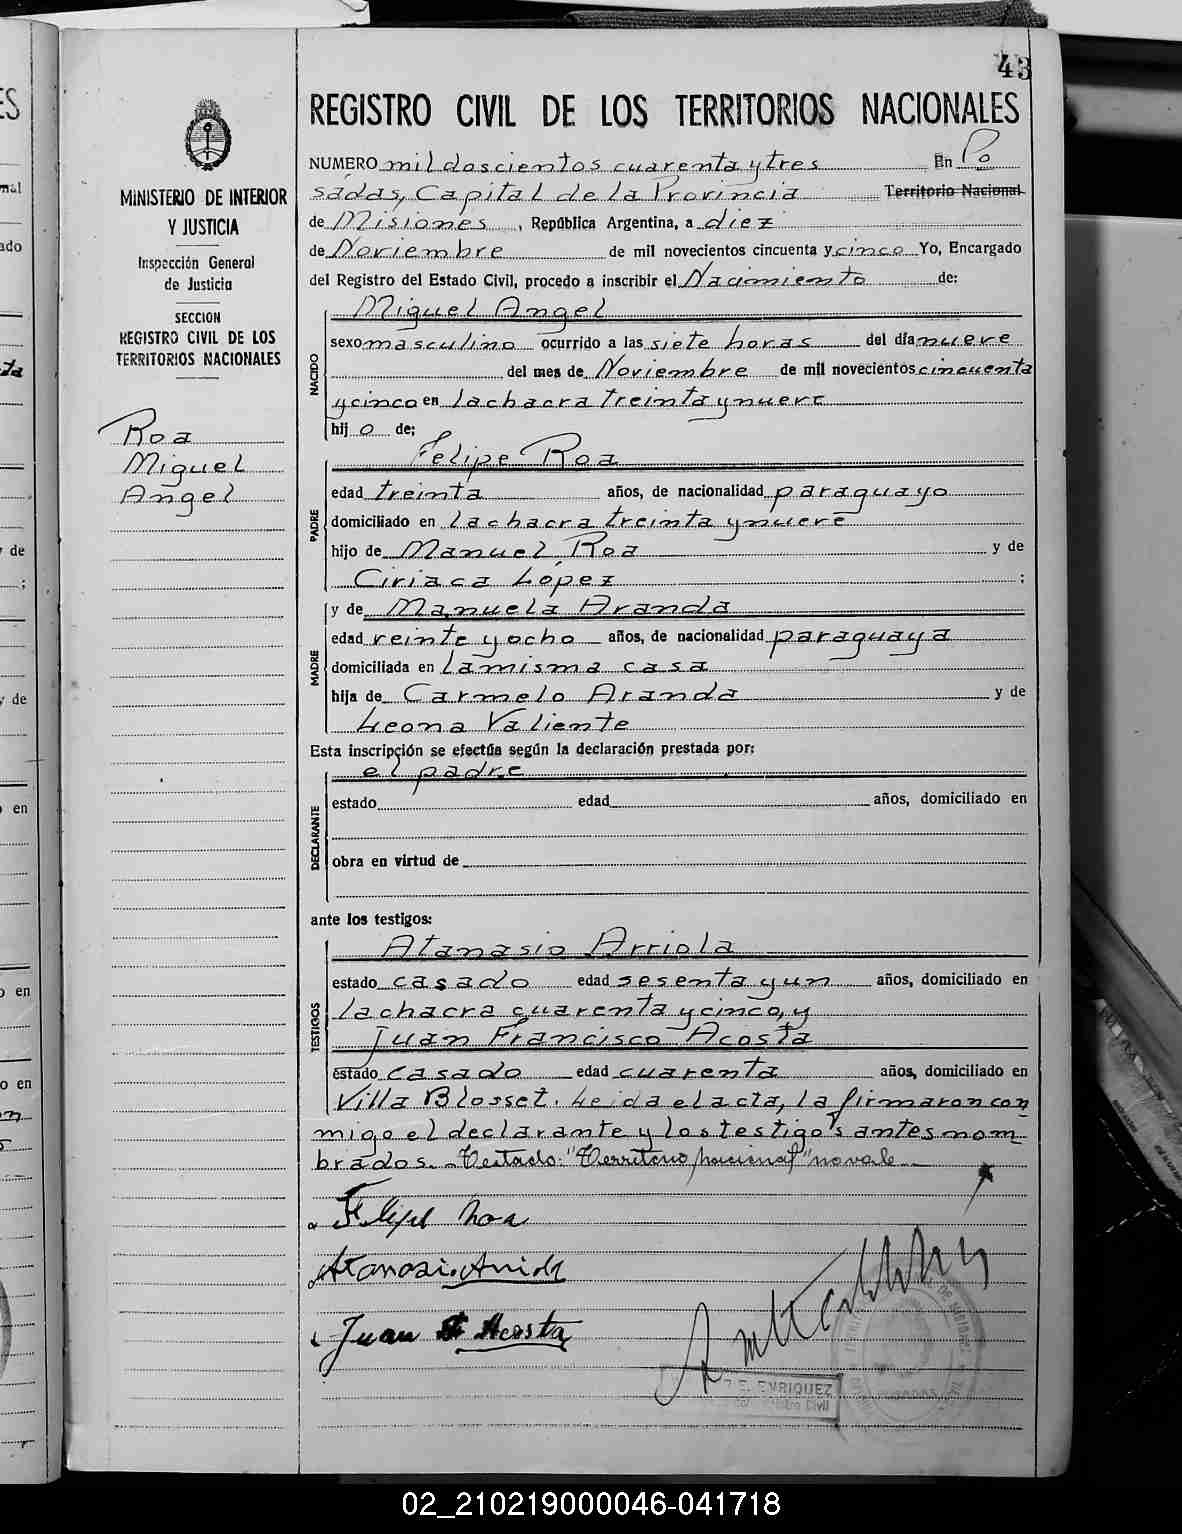 43
REGISTRO CIVIL DE LOS TERRITORIOS NACIONALES
MINISTERIO DE INTERIOR
Y JUSTICIA
Inspección General
de Justicia
SECCION
REGISTRO CIVIL DE LOS
TERRITORIOS NACIONALES
Roa
Miguel
Angel
NUMERO mil doscientos cuarenta y tres En Po
sadas, Capital de la Provincia Territorio Nacional
de Misiones, República Argentina, a diez
de Noviembre de mil novecientos cincuenta y cinco Yo, Encargado
del Registro del Estado Civil, procedo a inscribir el Nacimiento de:
NACIDO
Miguel Angel
sexo masculino ocurrido a las siete horas del día nueve
del mes de Noviembre de mil novecientos cincuenta
y cinco en la chacra treinta y nueve
hij o de;
PADRE
Felipe Roa
edad treinta años, de nacionalidad paraguayo
domiciliado en la chacra treinta y nueve
hijo de Manuel Roa y de
Ciriaca López ;
MADRE
y de Manuela Aranda
edad veinte y ocho años, de nacionalidad paraguaya
domiciliada en la misma casa
hija de Carmelo Aranda y de
Leona Valiente
Esta inscripción se efectúa según la declaración prestada por:
DECLARANTE
el padre
estado edad años, domiciliado en
obra en virtud de
ante los testigos:
TESTIGOS
Atanasio Arriola
estado casado edad sesenta y un años, domiciliado en
la chacra cuarenta y cinco, y
Juan Francisco Acosta
estado casado edad cuarenta años, domiciliado en
Villa Blosset. Leida el acta, la firmaron con
migo el declarante y los testigos antes nom
brados. Testado: "Territorio nacional" no vale
Felipe Roa
Juan F Acosta
E. ENRIQUEZ
Registro Civil
02_210219000046-041718